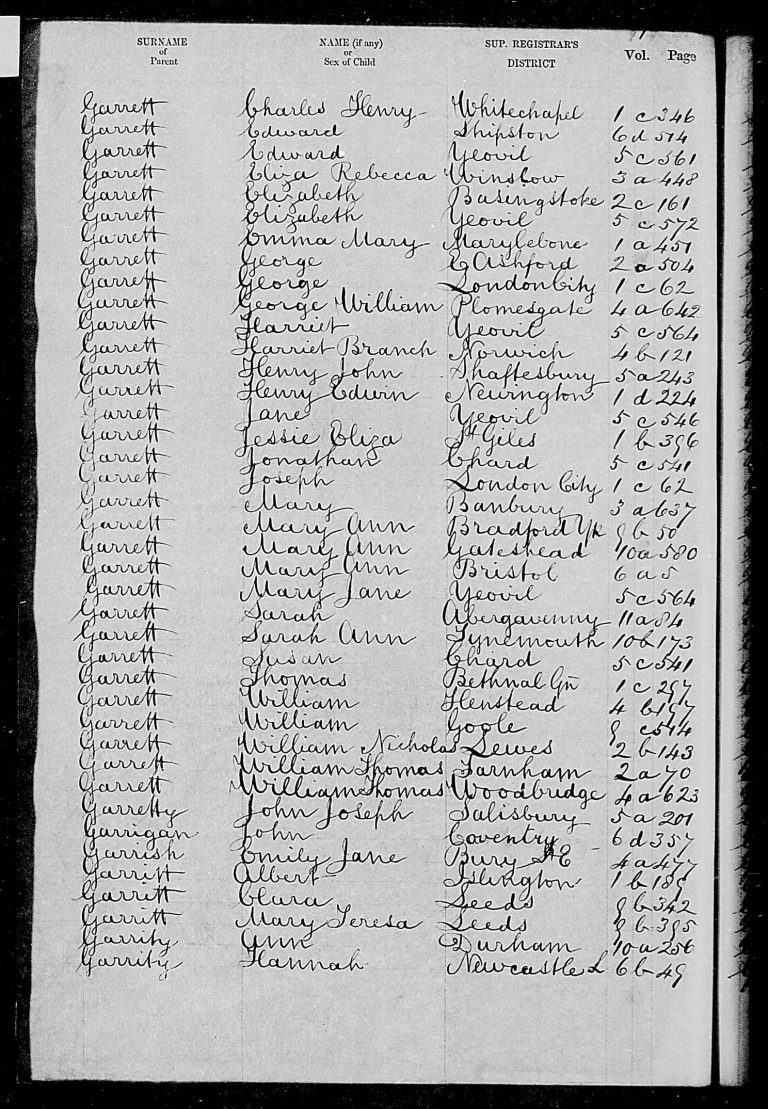 SURNAME of Parent NAME (if any) or Sex of Child SUP. REGISTRAR'S DISTRICT Vol. Page
Garrett Charles Henry Whitechapel 1 c 346
Garrett Edward Shipston 6 d 574
Garrett Edward Yeovil 5 c 561
Garrett Eliza Rebecca Winslow 3 a 448
Garrett Elizabeth Basingstoke 2 c 161
Garrett Elizabeth Yeovil 5 c 572
Garrett Emma Mary Marylebone 1 a 451
Garrett George E Ashford 2 a 504
Garrett George London City 1 c 62
Garrett George William Plomesgate 4 a 642
Garrett Harriet Yeovil 5 c 564
Garrett Harriet Branch Norwich 4 b 121
Garrett Henry John Shaftesbury 5 a 243
Garrett Henry Edwin Newington 1 d 224
Garrett Jane Yeovil 5 c 546
Garrett Jessie Eliza St Giles 1 b 396
Garrett Jonathan Chard 5 c 541
Garrett Joseph London City 1 c 62
Garrett Mary Banbury 3 a 637
Garrett Mary Ann Bradford Yk 9 b 50
Garrett Mary Ann Gateshead 10 a 580
Garrett Mary Ann Bristol 6 a 5
Garrett Mary Jane Yeovil 5 c 564
Garrett Sarah Abergavenny 11 a 84
Garrett Sarah Ann Tynemouth 10 b 173
Garrett Susan Chard 5 c 541
Garrett Thomas Bethnal Gn 1 c 297
Garrett William Henstead 4 b 197
Garrett William Goole 9 c 514
Garrett William Nicholas Lewes 2 b 143
Garrett William Thomas Farnham 2 a 70
Garrett William Thomas Woodbridge 4 a 623
Garretty John Joseph Salisbury 5 a 201
Garrigan John Coventry 6 d 357
Garrish Emily Jane Bury St E 4 a 477
Garritt Albert Islington 1 b 189
Garritt Clara Leeds 9 b 342
Garritt Mary Teresa Leeds 9 b 395
Garrity Ann Durham 10 a 256
Garrity Hannah Newcastle L 6 b 49